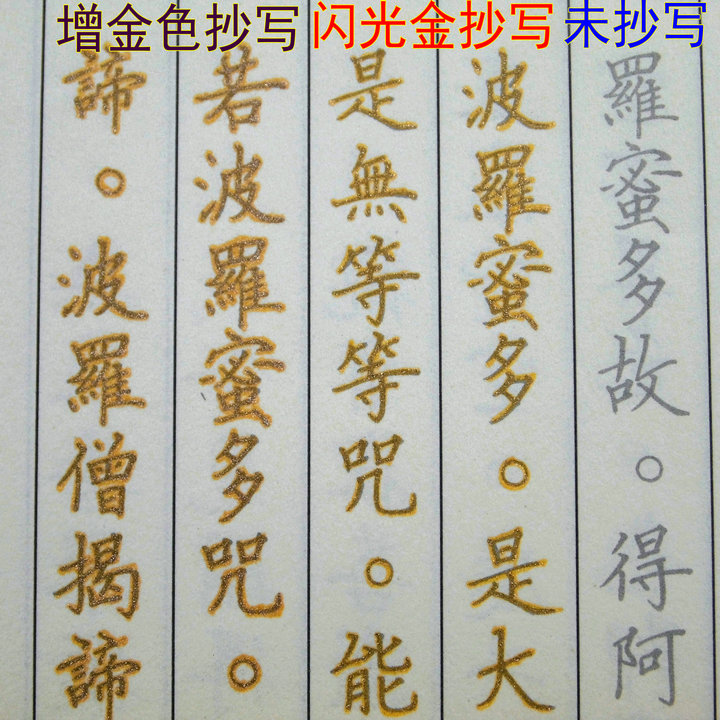 增金色抄写 闪光金抄写 未抄写
羅蜜多故。得阿
波羅蜜多。是大
是無等等咒。能
若波羅蜜多咒。
諦。波羅僧揭諦